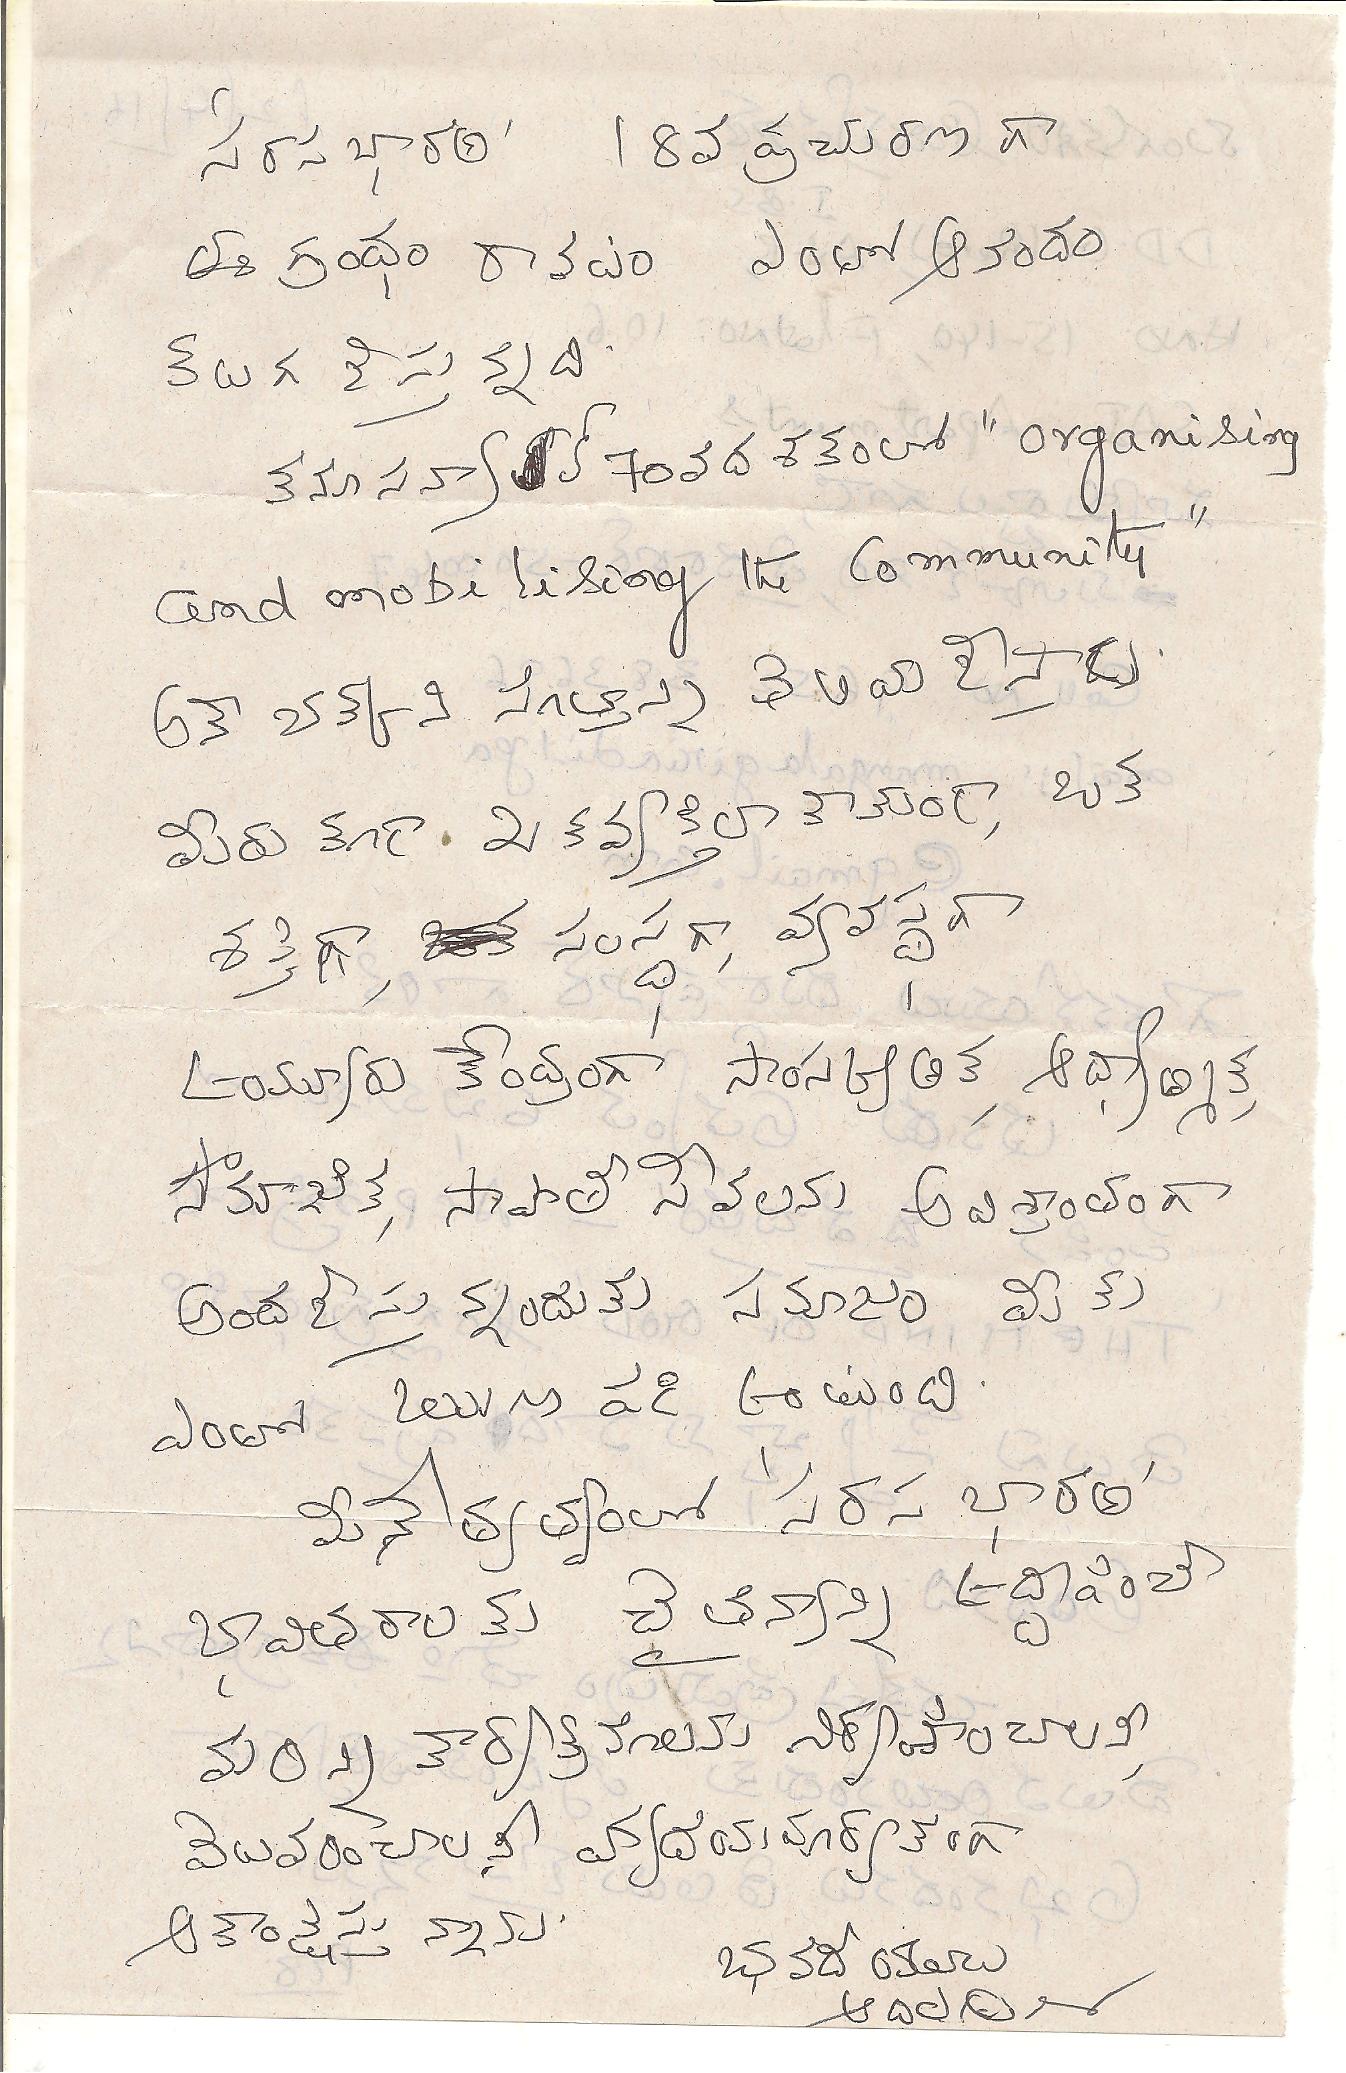 'సరసభారతి' 18వ ప్రచురణగా
ఈ గ్రంథం రావడం ఎంతో ఆనందం
కలుగ జేస్తున్నది.
70వ దశకంలో "organising
and mobilising the Community"
అనే తెలియజేస్తాడు.
మీరు కూడా ఒకవ్యక్తిలా కాకుండా, ఒక
శక్తిగా, సంస్థగా, వ్యవస్థగా
ఉయ్యూరు కేంద్రంగా సాంస్కృతిక, ఆధ్యాత్మిక,
సామాజిక, సాహితీ సేవలను అవిశ్రాంతంగా
అందజేస్తున్నందుకు సమాజం మీకు
ఎంతో ఋణపడి ఉంటుంది.
మీ నేతృత్వంలో 'సరస భారతి'
భావితరాలకు చైతన్యాన్ని ఉద్దీపించే
మరిన్ని కార్యక్రమాలను నిర్వహించాలని,
వెలువరించాలని హృదయపూర్వకంగా
ఆకాంక్షిస్తున్నాను.
భవదీయుడు